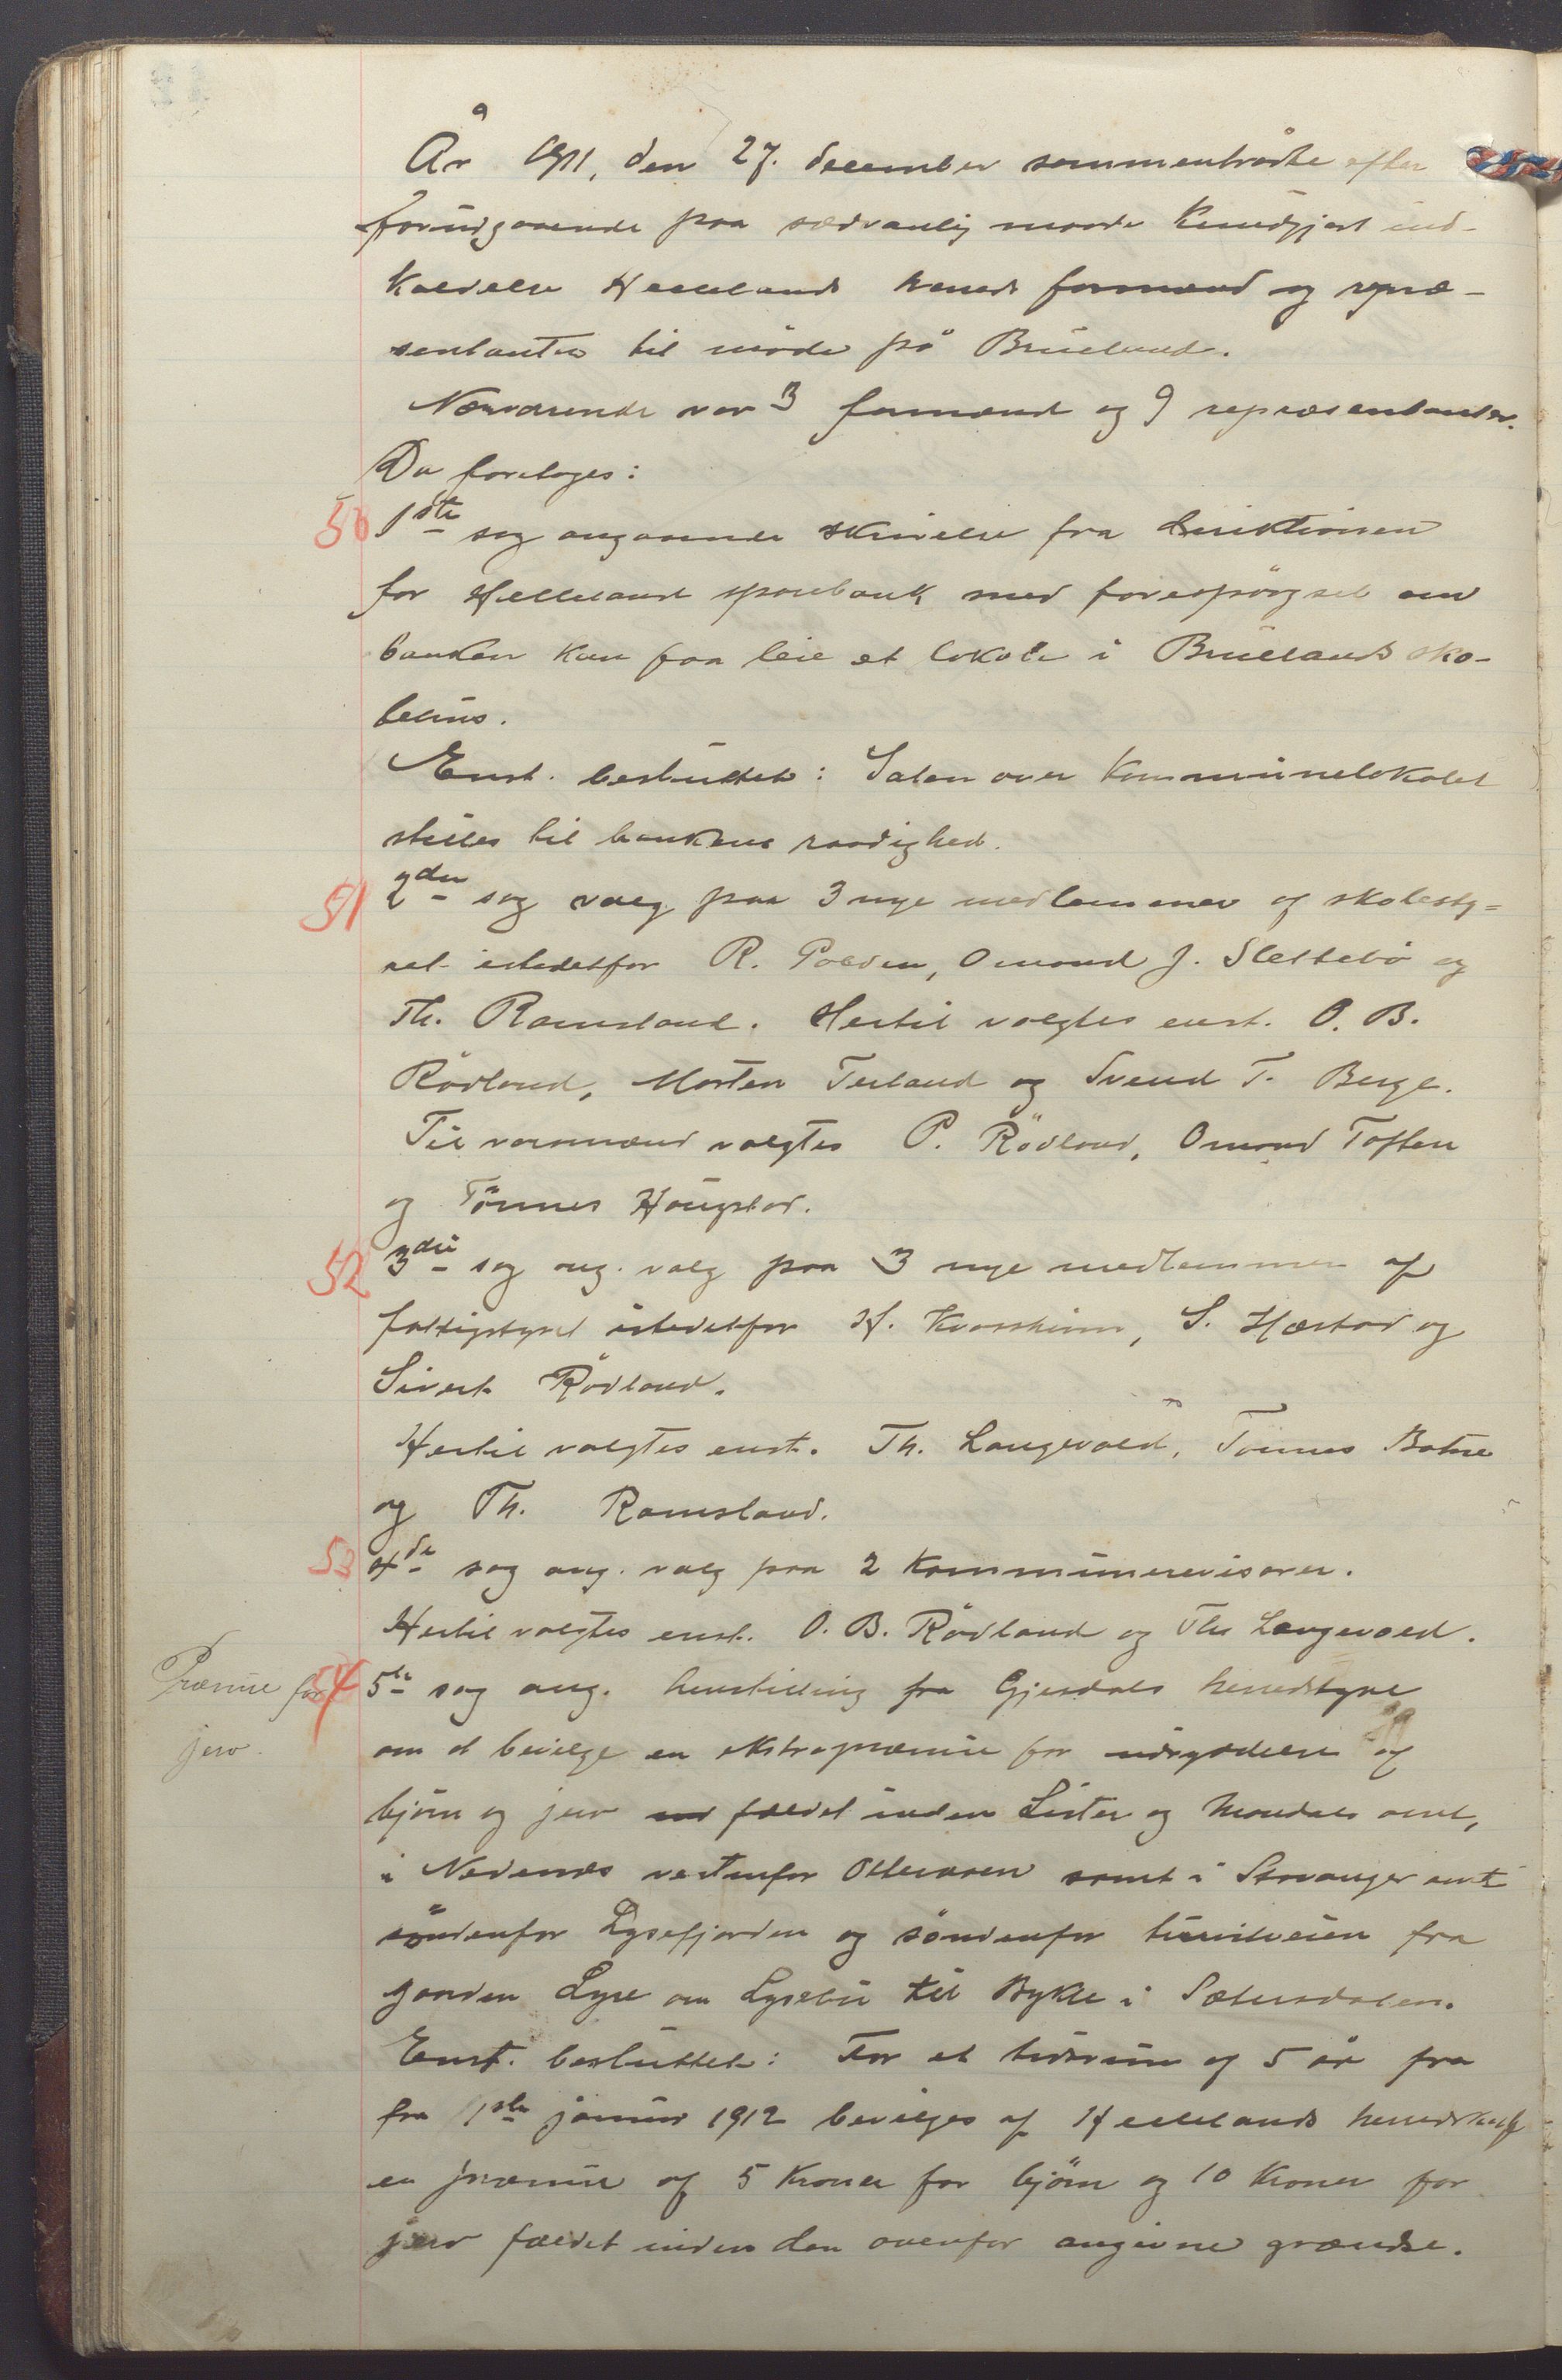 År 1911, den 27. december sammentrådte efter
forudgaaende paa sædvanlig maade kundgjort ind-
kaldelse Hellelands herreds formænd og repræ-
sentanter til møde på Brueland.
Nærværende var 3 formænd og 9 repræsentanter.
Da foretoges:
50 1ste sag angaaende skrivelse fra direktionen
for Helleland sparebank med forespørgsel om
banken kan faa leie et lokale i Bruelands sko-
lehus.
Enst. besluttet: Salen over kommunelokalet
stilles til bankens raadighed.
51 2den sag valg paa 3 nye medlemmer af skolesty=
ret istedetfor R. Polden, Omund J. Slettebö og
Th. Ramsland. Hertil valgtes enst. O. B.
Rödland, Morten Terland og Svend T. Berge.
Til varamænd valgtes P. Rödland, Omund Toften
og Tönnes Haugstad.
52 3die sag ang. valg paa 3 nye medlemmer af
fattigstyret istedetfor H. Kvassheim, S. Hæstad og
Sivert Rödland.
Hertil valgtes enst. Th. Langevald, Tönnes Botne
og Th. Ramsland.
53 4de sag ang. valg paa 2 kommunerevisorer.
Hertil valgtes enst. O. B. Rödland og Ths Langevald.
Præmie for
jerv.
54 5te sag ang. henstilling fra Gjesdals herredstyre
om at bevilge en ekstrapræmie for udryddelse af
björn og jerv fældet inden Lister og Mandals amt,
i Nedenæs vestenfor Otteraaen samt i Stavanger amt
söndenfor Lysefjorden og söndenfor turistveien fra
gaarden Lyse om Lysebu til Bykle i Sætersdalen.
Enst. besluttet: For et tidsrum af 5 år fra
fra 1ste januar 1912 bevilges af Hellelands herredskasse
en præmie af 5 kroner for björn og 10 kroner for
jerv fældet inden den ovenfor angivne grændse.